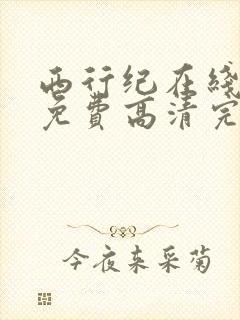 西行纪在线
免费高清完
今夜来采菊